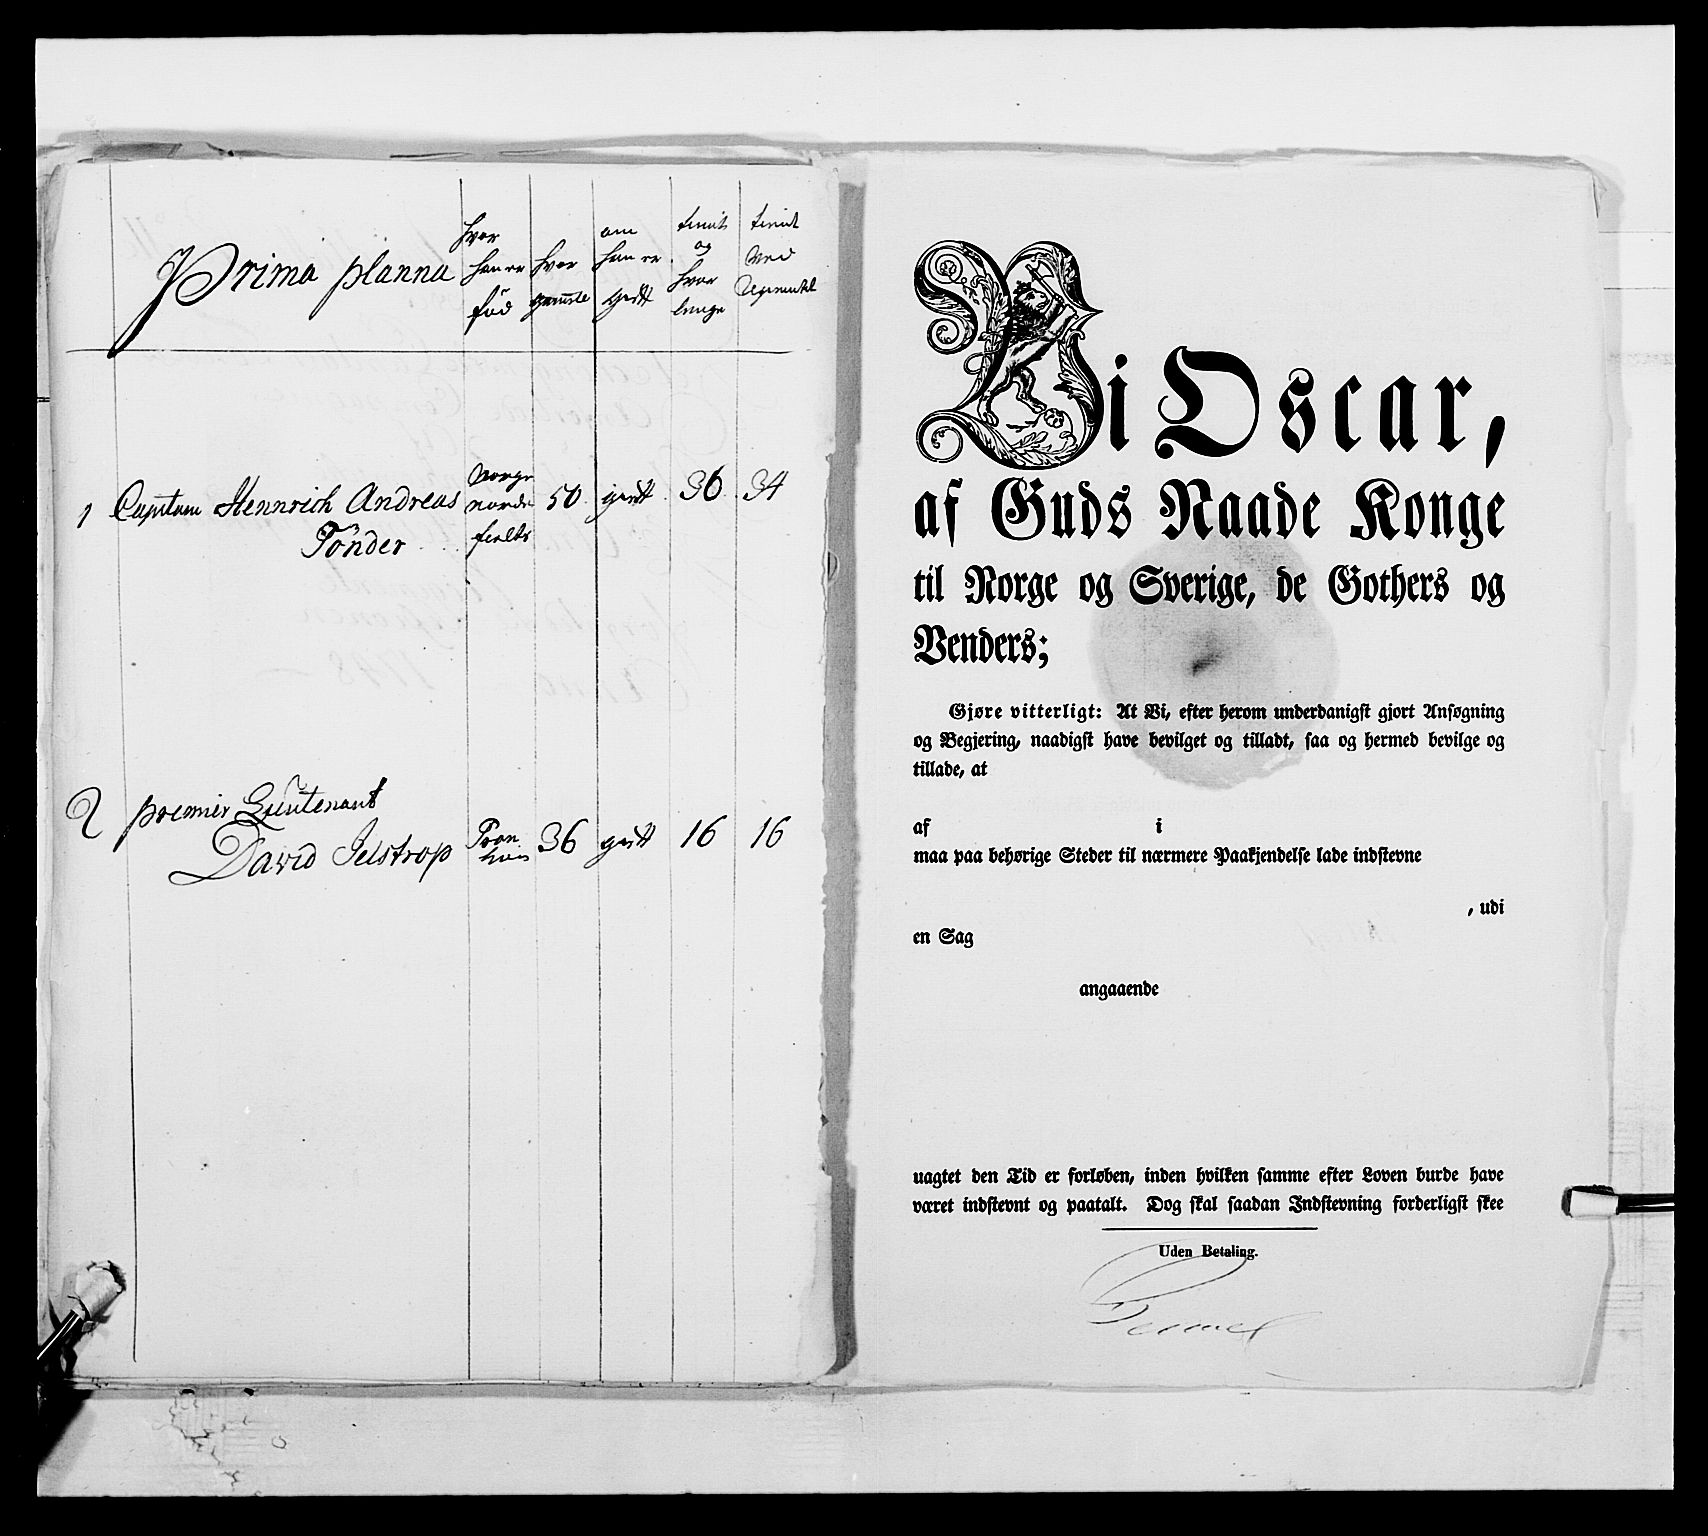 Prima planna
hvor
han er
fød
hvor
gammele
om
han er
gift
tient
og
hvor
lenge
tient
ved
Regimentet
1 Capitain Hennrich Andreas
Tönder
Norge
norden
fields
50
gift
36
34
2 premier Lieutenant
David Jelstrop
Tron
hiem
36
gift
16
16
Vi Oscar,
af Guds Naade Konge
til Norge og Sverige, de Gothers og
Venders;
Gjøre vitterligt: At Vi, efter herom underdanigst gjort Ansøgning
og Begjering, naadigst have bevilget og tilladt, saa og hermed bevilge og
tillade, at
af i
maa paa behørige Steder til nærmere Paakjendelse lade indstevne
, udi
en Sag
angaaende
uagtet den Tid er forløben, inden hvilken samme efter Loven burde have
været indstevnt og paatalt. Dog skal saadan Indstevning forderligst skee
Uden Betaling.